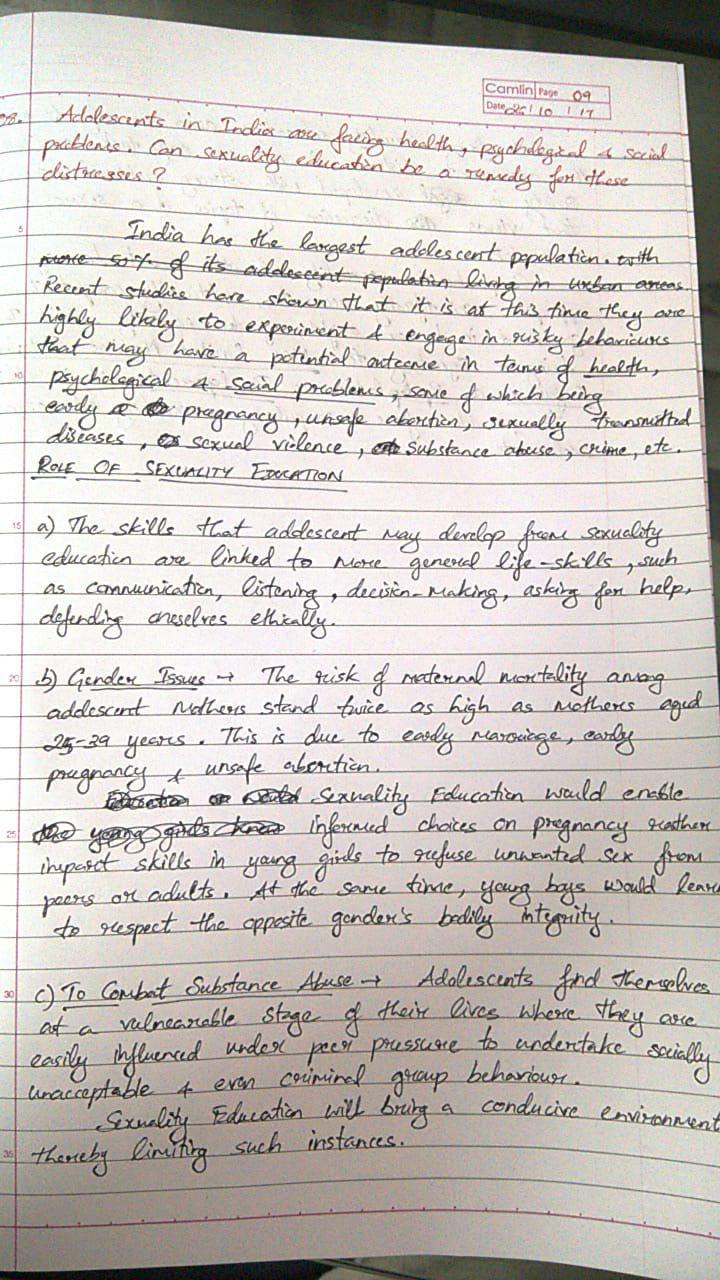 Camlin Page 09
Date 25/10/17
08. Adolescents in India are facing health, psychological & social
problems. Can sexuality education be a remedy for these
distresses?
5
India has the largest adolescent population. with
more 50% of its adolescent population living in urban areas.
Recent studies have shown that it is at this time they are
highly likely to experiment & engage in risky behaviours
that may have a potential outcome in terms of health,
10 psychological & social problems, some of which being
early pregnancy, unsafe abortion, sexually transmitted
diseases, sexual violence, substance abuse, crime, etc.
ROLE OF SEXUALITY EDUCATION
15 a) The skills that adolescent may develop from sexuality
education are linked to more general life-skills, such
as communication, listening, decision-making, asking for help,
defending oneselves ethically.
20 b) Gender Issues → The risk of maternal mortality among
adolescent mothers stand twice as high as mothers aged
25-39 years. This is due to early marriage, early
pregnancy & unsafe abortion.
Sexuality Education would enable
25 the young girls know informed choices on pregnancy rather
impart skills in young girls to refuse unwanted sex from
peers or adults. At the same time, young boys would learn
to respect the opposite gender's bodily integrity.
30 c) To Combat Substance Abuse → Adolescents find themselves
at a vulnearable stage of their lives where they are
easily influenced under peer pressure to undertake socially
unacceptable & even criminal group behaviour.
Sexuality Education will bring a conducive environment
35 thereby limiting such instances.